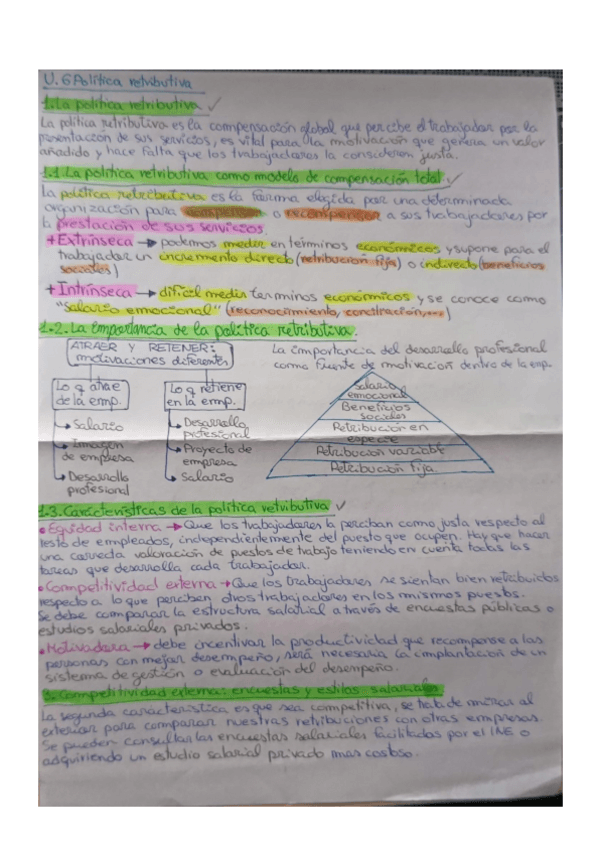 U. 6 Política retributiva
1. La política retributiva ✓
La política retributiva es la compensación global que percibe el trabajador por la
presentación de sus servicios, es vital para la motivación que genera un valor
añadido y hace falta que los trabajadores la consideren justa.
1.1 La política retributiva como modelo de compensación total ✓
La política retributiva es la forma elegida por una determinada
organización para compensar o recompensar a sus trabajadores por
la prestación de sus servicios.
+ Extrínseca → podemos medir en términos económicos y supone para el
trabajador un incremento directo (retribución fija) o indirecto (beneficios
sociales)
+ Intrínseca → difícil medir terminos económicos y se conoce como
"Salario emocional" (reconocimiento, ...)
1.2. La importancia de la política retributiva.
ATRAER Y RETENER:
motivaciones diferentes
La importancia del desarrollo profesional
como fuente de motivacion dentro de la emp.
Lo q atrae
de la emp.
→ Salario
→ Imagen
de empresa
→ Desarrollo
profesional
Lo q retiene
en la emp.
→ Desarrollo
profesional
→ Proyecto de
empresa
→ Salario
Salario
emocional
Beneficios
sociales
Retribución en
especie
Retribución variable
Retribución fija
1.3. Características de la política retributiva ✓
• Equidad interna → Que los trabajadores la perciban como justa respecto al
resto de empleados, independientemente del puesto que ocupen. Hay que hacer
una correcta valoración de puestos de trabajo teniendo en cuenta todas las
tareas que desarrolla cada trabajador.
• Competitividad externa → Que los trabajadores se sientan bien retribuidos
respecto a lo que perciben otros trabajadores en los mismos puestos.
Se debe comparar la estructura salarial a través de encuestas públicas o
estudios salariales privados.
• Motivadora → debe incentivar la productividad que recompense a las
personas con mejor desempeño, será necesaria la implantación de un
sistema de gestión o evaluación del desempeño.
Competitividad externa: encuestas y estilos salariales
La segunda característica es que sea competitiva, se trata de mirar al
exterior para comparar nuestras retribuciones con otras empresas.
Se pueden consultar las encuestas salariales facilitados por el INE o
adquiriendo un estudio salarial privado mas costoso.